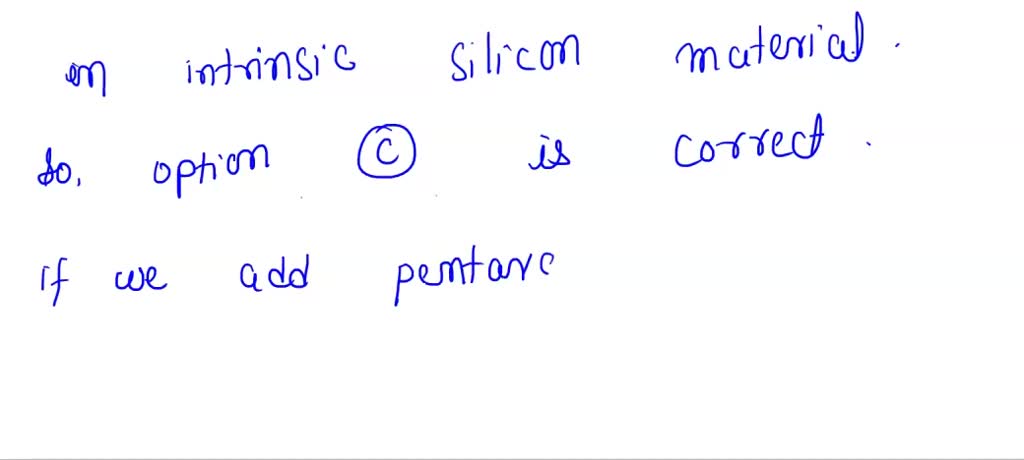 on intrinsic silicon material.
So, option C is correct.
if we add pentava